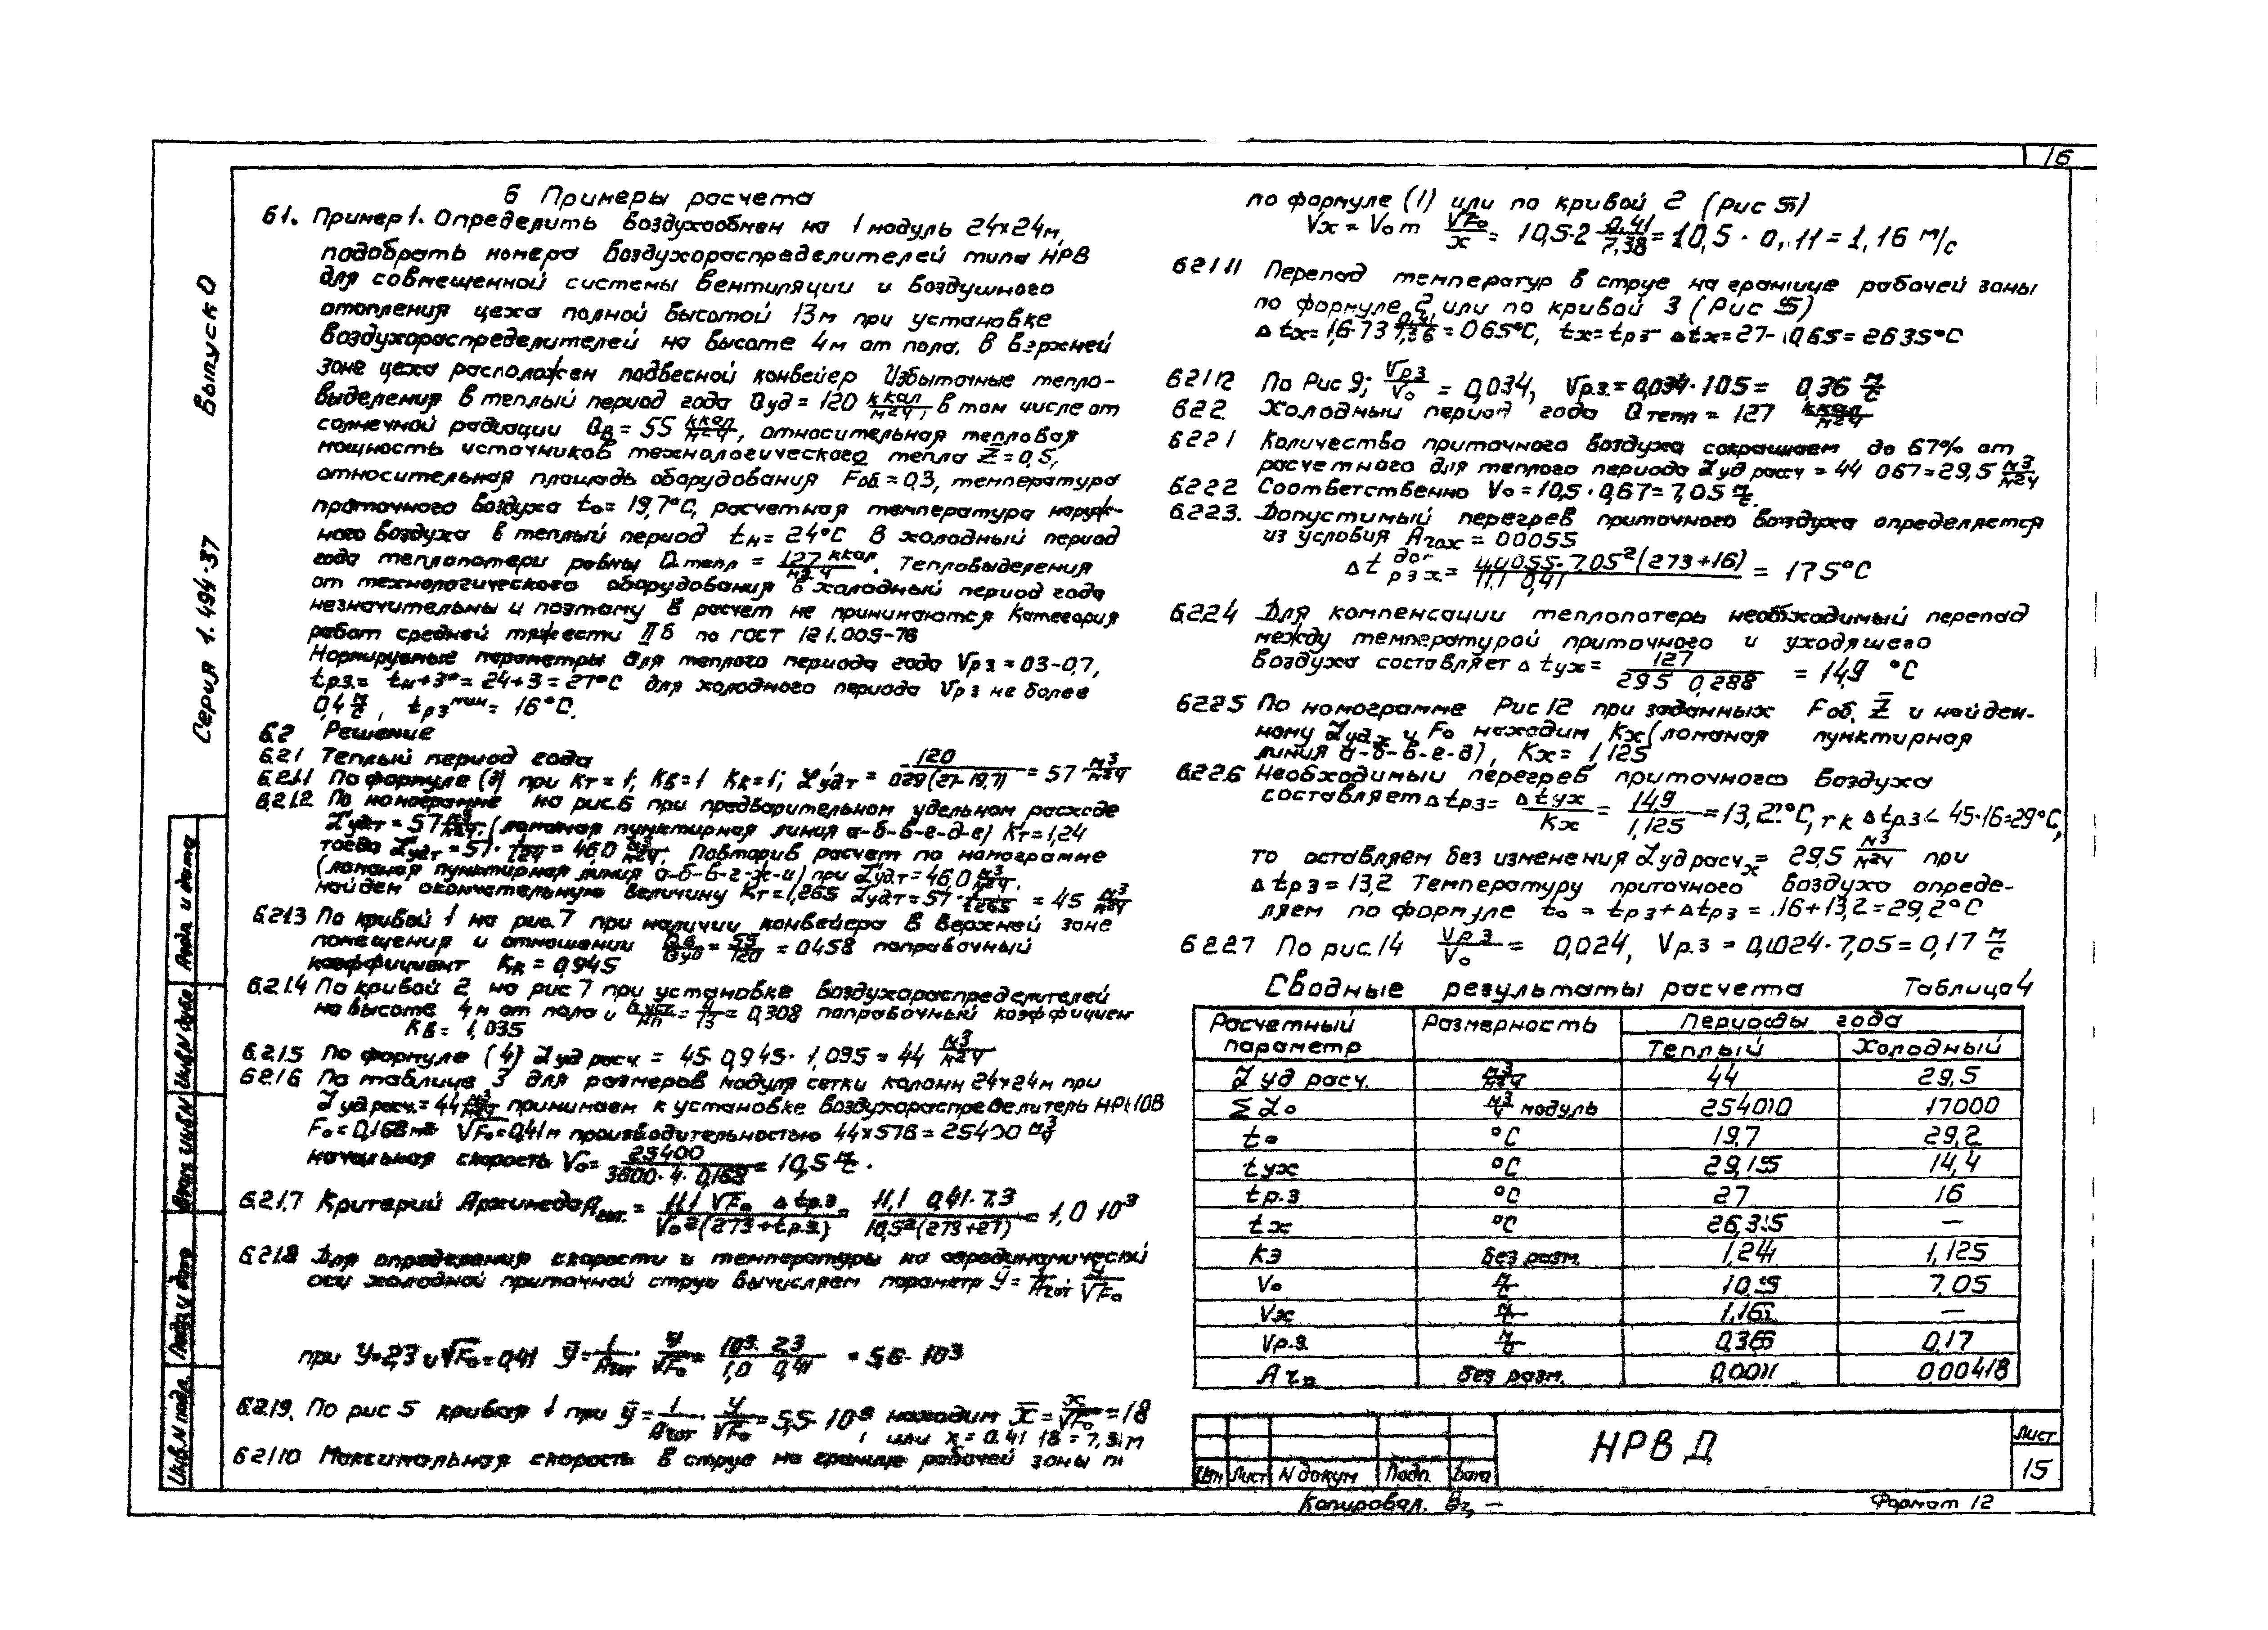 16
Серия 1.494-37 Выпуск 0
6 Примеры расчета
6.1. Пример 1. Определить воздухообмен на 1 модуль 24×24м,
подобрать номера воздухораспределителей типа НРВ
для совмещенной системы вентиляции и воздушного
отопления цеха полной высотой 13м при установке
воздухораспределителей на высоте 4м от пола. В верхней
зоне цеха расположен подвесной конвейер Избыточные тепло-
выделения в теплый период года Qуд = 120 ккал/м²ч, в том числе от
солнечной радиации Qв = 55 ккал/м²ч, относительная тепловая
мощность источников технологического тепла Z̄ = 0,5,
относительная площадь оборудования Fоб = 0,3, температура
приточного воздуха tо = 19,7°С, расчетная температура наруж-
ного воздуха в теплый период tн = 24°С В холодный период
года теплопотери равны Qтепл = 127 ккал/м²ч. Тепловыделения
от технологического оборудования в холодный период года
незначительны и поэтому в расчет не принимаются Категория
работ средней тяжести IIб по ГОСТ 12 1.005-76
Нормируемые параметры для теплого периода года Vрз = 03-0,7,
tр.з. = tн+3° = 24+3 = 27°С для холодного периода Vрз не более
0,4 м/с, tрз мин = 16°С.
6.2 Решение
6.2.1 Теплый период года
6.2.1.1 По формуле (3) при Кт = 1; Кв = 1 Кк = 1; Lудт = 120/029(27-19,7) = 57 м³/м²ч
6.2.1.2 По номограмме на рис.6 при предварительном удельном расходе
Lудт = 57 м³/м²ч. (ломаная пунктирная линия а-б-в-г-д-е) Кт = 1,24
тогда Lудт = 57· 1/124 = 46,0 м³/м²ч. Повторив расчет по номограмме
(ломаная пунктирная линия а-б-в-г-ж-и) при Lудт = 46,0 м³/м²ч.
найдем окончательную величину Кт = 1,265 Lудт = 57· 1/1265 = 45 м³/м²ч
6.2.1.3 По кривой 1 на рис. 7 при наличии конвейера в верхней зоне
помещения и отношении Qв/Qуд = 55/120 = 0458 поправочный
коэффициент Кк = 0,945
6.2.1.4 По кривой 2 на рис 7 при установке воздухораспределителей
на высоте 4м от пола и = 4/13 = 0,308 поправочный коэффициен
Кв = 1,035
6.2.1.5 По формуле (4) Lуд расч = 45· 0,945· 1,035 = 44 м³/м²ч
6.2.1.6 По таблице 3 для размеров модуля сетки колонн 24×24м при
Lуд расч. = 44 м³/м²ч принимаем к установке воздухораспределитель
Fо = 0,168м² √Fо = 0,41м производительностью 44×576 = 25400 м³/ч
начальная скорость Vо = 25400/3600·4·0,168 = 10,5 м/с.
6.2.1.7 Критерий Архимеда = 11,1 √Fо Δtр.з/Vо²(273+tр.з.) = 11,1 0,41·7,3/10,5²(273+27) = 1,0 10³
6.2.1.8 Для определения скорости и температуры на аэродинамической
оси холодной приточной струи вычисляем параметр ȳ = 1/Aгот · y/√Fо
при У=2,3 и √Fо=0,41 ȳ = 1/Aгот · y/√Fо = 10³·2,3/1,0 0,41 = 5,6· 10³
6.2.1.9. По рис 5 кривая 1 при ȳ = 1/Aгот · y/√Fо = 5,5· 10³ находим x̄ = x/√Fо = 18
или х = 0.41 18 = 7,31м
6.2.1.10 Максимальная скорость в струе на границе рабочей зоны
по формуле (1) или по кривой 2 (Рис 5)
Vх = Vо m √Fо/x = 10,5·2 0,41/7,38 = 10,5 · 0,11 = 1,16 м/с
6.2.1.11 Перепад температур в струе на границе рабочей зоны
по формуле 2 или по кривой 3 (Рис 5)
Δtх = 1,6·73 0,41/7,36 = 065°С, tх = tрз- Δtх = 27- 0,65 = 26 35°С
6.2.1.12 По Рис 9; Vрз/Vо = 0,034, Vр.з. = 0,034·105 = 0,36 м/с
6.2.2 Холодный период года Qтепл = 127 ккал/м²ч
6.2.2.1 Количество приточного воздуха сокращаем до 67% от
расчетного для теплого периода Lуд расч = 44 067 = 29,5 м³/м²ч
6.2.2.2 Соответственно Vо = 10,5 · 0,67 = 7,05 м/с.
6.2.2.3. Допустимый перегрев приточного воздуха определяется
из условия Aгох = 00055
Δt доп рз х = 7.05²(273+16)/11,1 0,41 = 17 5°С
6.2.2.4 Для компенсации теплопотерь необходимый перепад
между температурой приточного и уходящего
воздуха составляет Δtух = 127/29 5 0,288 = 14,9 °С
6.2.2.5 По номограмме Рис 12 при заданных Fоб, Z̄ и найден-
ному Lуд.х и Fо находим Кх (ломаная пунктирная
линия а-б-в-г-д), Кх = 1,125
6.2.2.6 Необходимый перегрев приточного воздуха
составляет Δtрз = Δtух/Кх = 14,9/1,125 = 13,2°С, т к Δtрз < 45-16=29°С,
то оставляем без изменения Lуд расч х = 29,5 м³/м²ч при
Δtрз = 13,2 Температуру приточного воздуха опреде-
ляем по формуле tо = tрз+Δtрз = 16+13,2 = 29,2°С
6.2.2.7 По рис. 14 Vрз/Vо = 0,024, Vр.з = 0,024·7,05 = 0,17 м/с
Сводные результаты расчета Таблица 4
Расчетный параметр Размерность Периоды года
Теплый Холодный
L уд расч. м³/м²ч 44 29,5
ΣLо м³/ч модуль 17000
tо °С 19,7 29,2
tух °С 14,4
tр.з °С 27 16
tх °С —
Кэ без разм. 1,24 1,125
Vо м/с 7,05
Vх м/с —
Vр.з. м/с 0,17
без разм. 0,0011 0.00418
НРВ Д
Лист
15
Изм Лист N докум Подп. Дата
Копировал.
Формат 12
Инв.N подл. Подп и дата Взам инв N Инв N дубл Подп. и дата